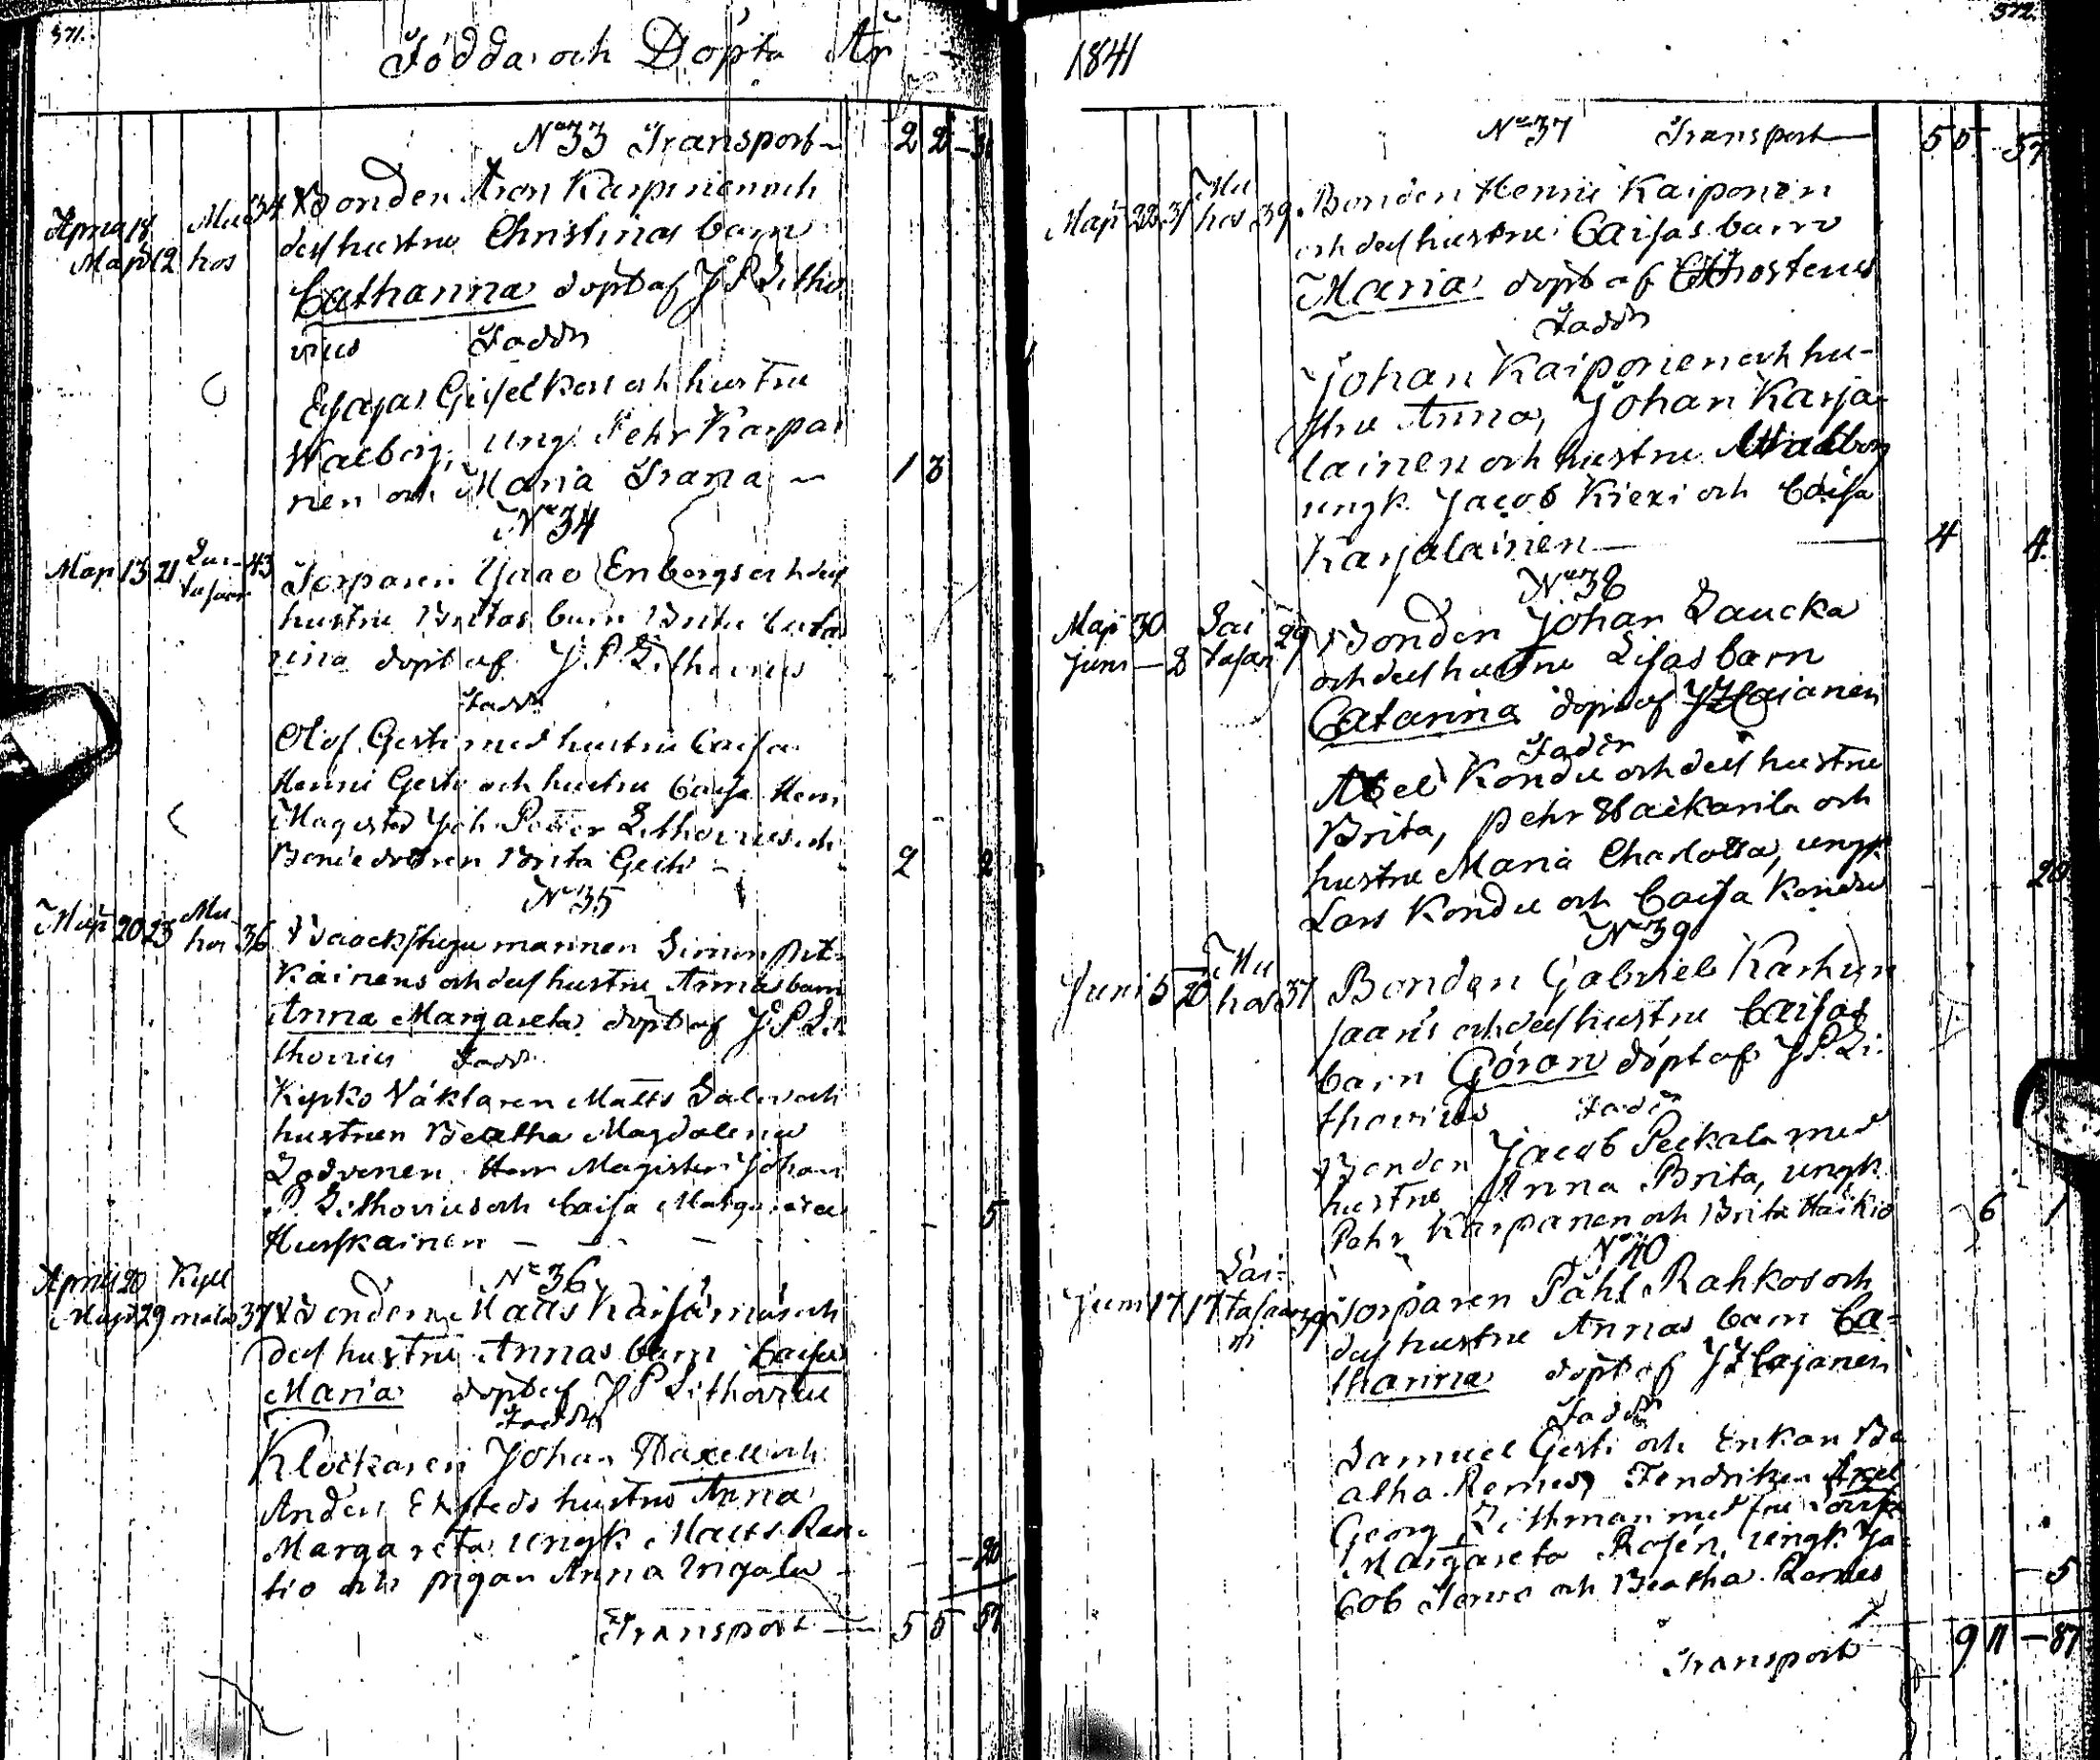 371.
Födda och Döpta År
N° 33 Transport
2 2
Bonden Aron Karpinen och
April 18 Mu 34
Maji 12 hos
dess hustru Christinas barn
Catharina döpt af J P Litho
vius Faddr
Esajas och hustru
Walborg, ung. Pehr Karpa
nen och Maria Trana 1 3
N° 34
Maj 13 21 43
Torparen Enbergs och dess
hustru Britas barn Brita Cata
rina döpt af J. P. Lithovius
Faddr
Olof Gesti med hustru Caisa
Henric Gesti och hustru Caisa Herr
Magister Joh. Petter Lithovius och
Bondedottren Brita Gesti 2 2
N° 35
Maji 20 23 Mu hos 36
Backstugu mannen Simon Pit-
käinens och dess hustru Annas barn
Anna Margareta döpt af J P Li
thovius Fadd
Kyrko Väktaren Matts Salen och
hustrun Beatha Magdalena
Herr Magister Johan
P. Lithovius och Caisa Margareta
Hurskainen 5
N° 36
April 20 Kyll
Maji 29 mala 37
Bonden Matts och
dess hustru Annas barn Caisa
Maria döpt af J P Lithovius
Faddr
Klockaren Johan och
Anders Eksteds hustru Anna
Margareta ungk. Matts Ran-
tio och pigan Anna 20
Transport 5 5 57
372.
1841
N° 37 Transport 5 5 57
Maji 22 31 Mu hos 39
Bonden Henric Kaiponen
och dess hustru Caisas barn
Maria döpt af
Faddr
Johan Kaiponen och hu-
stru Anna, Johan Karja-
lainen och hustru Walborg
ungk. Jacob Kiexi och Caisa
Karjalainen 4 4
N° 38
Maji 30 Sai 29
Juni 8 tasaari
Bonden Johan Laucka
och dess hustru Lisas barn
Catarina döpt af J F Cajanen
Faddr
Abel Kondu och dess hustru
Brita, Pehr och
hustru Maria Charlotta, ungk.
Lars Kondu och Caisa Kondu 20
N° 39
Juni 5 20 Mu hos 37
Bonden Gabriel Karhun
saaris och dess hustru Caisas
barn Göran döpt af J P. Li-
thovius Faddr
Bonden Jacob Peckala med
hustru Anna Brita, ungk.
Pehr Karpanen och Brita Häikiö 6 1
N° 40
Juni 17 17 Sai- tasaari 39
Torparen Påhl Rahkos och
dess hustru Annas barn Ca-
tharina döpt af J F Cajanen
Faddr
Samuel Gesti och Enkan Be
atha Remes, Fendriken Axel
Georg Lithman med fru Lovisa
Margareta Rosén, ungk. Ja
cob och Beatha Remes 5
Transport 9 11 87